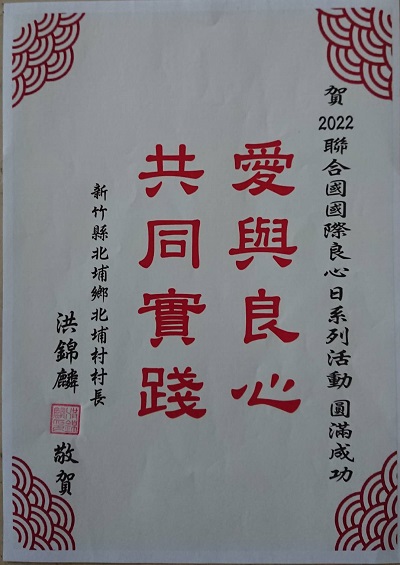 賀 2022 聯合國國際良心日系列活動 圓滿成功
愛與良心
共同實踐
新竹縣北埔鄉北埔村村長
洪錦麟 敬賀